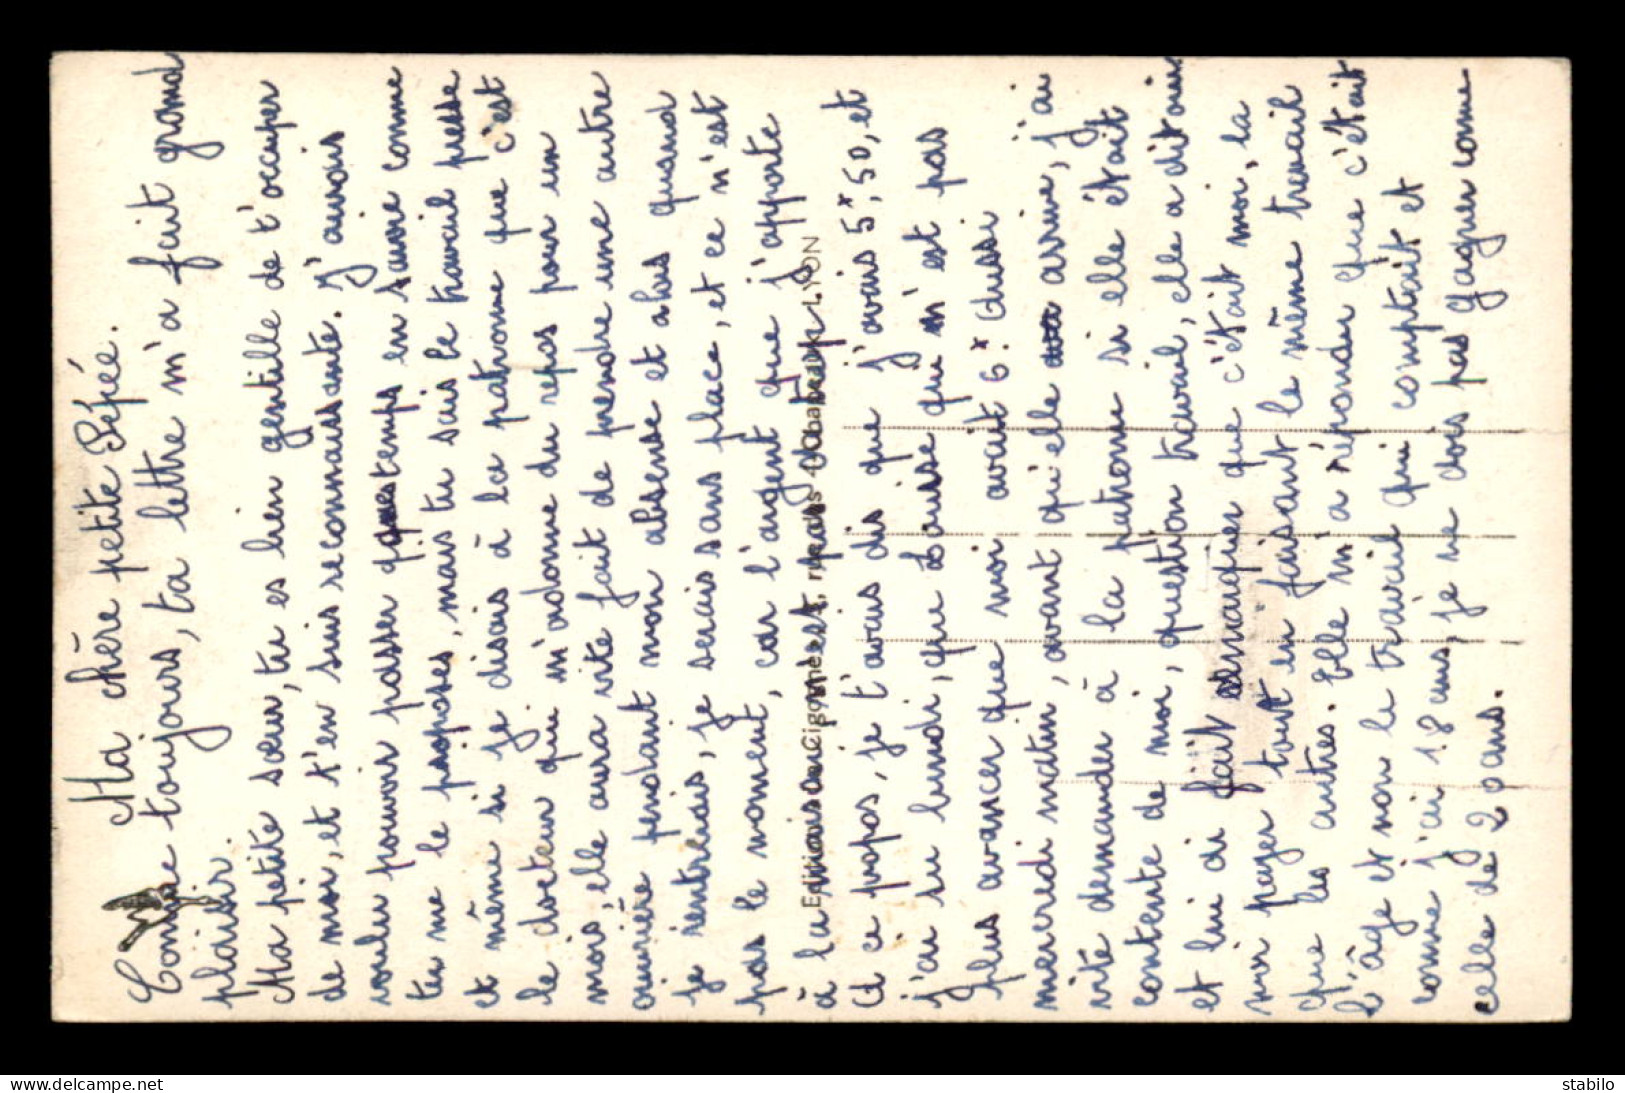 Ma chère petite Pépée.
Comme toujours, ta lettre m'a fait grand
plaisir.
Ma petite sœur, tu es bien gentille de t'occuper
de moi, et t'en suis reconnaissante. J'aurais
voulu pouvoir passer temps en sauvre comme
tu me le proposes, mais tu sais le travail presse
et même si je disais à la patronne que c'est
le docteur qui m'ordonne du repos pour un
mois, elle aura vite fait de prendre une autre
ouvrière pendant mon absense et alors quand
je rentrerais, je serais sans place, et ce n'est
pas le moment, car l'argent que j'apporte
à la
Editions des Cigognes LYON
A ce propos, je t'avais dis que j'avais 5x,50, et
j'ai su lundi, que Louise qui n'est pas
plus avancer que moi avait 6x. Aussi
mercredi matin, avant qu'elle arrive, j'ai
vite demander à la patronne si elle était
contente de moi, question travail, elle a dit oui
et lui di fait remarquer que c'était moi, la
moi payer tout en faisant le même travail
que les autres. Elle m'a répondu que c'était
l'âge et non le travail qui comptait et
comme j'ai 18 ans, je ne dois pas gagner comme
celle de 20 ans.
delcampe.net
stabilo